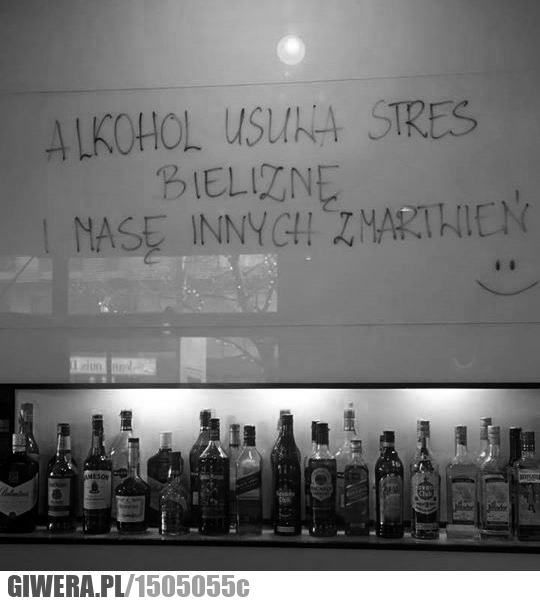 ALKOHOL USUWA STRES
BIELIZNĘ
I MASĘ INNYCH ZMARTWIEŃ
Ballantine's
JAMESON
GIWERA.PL/1505055c